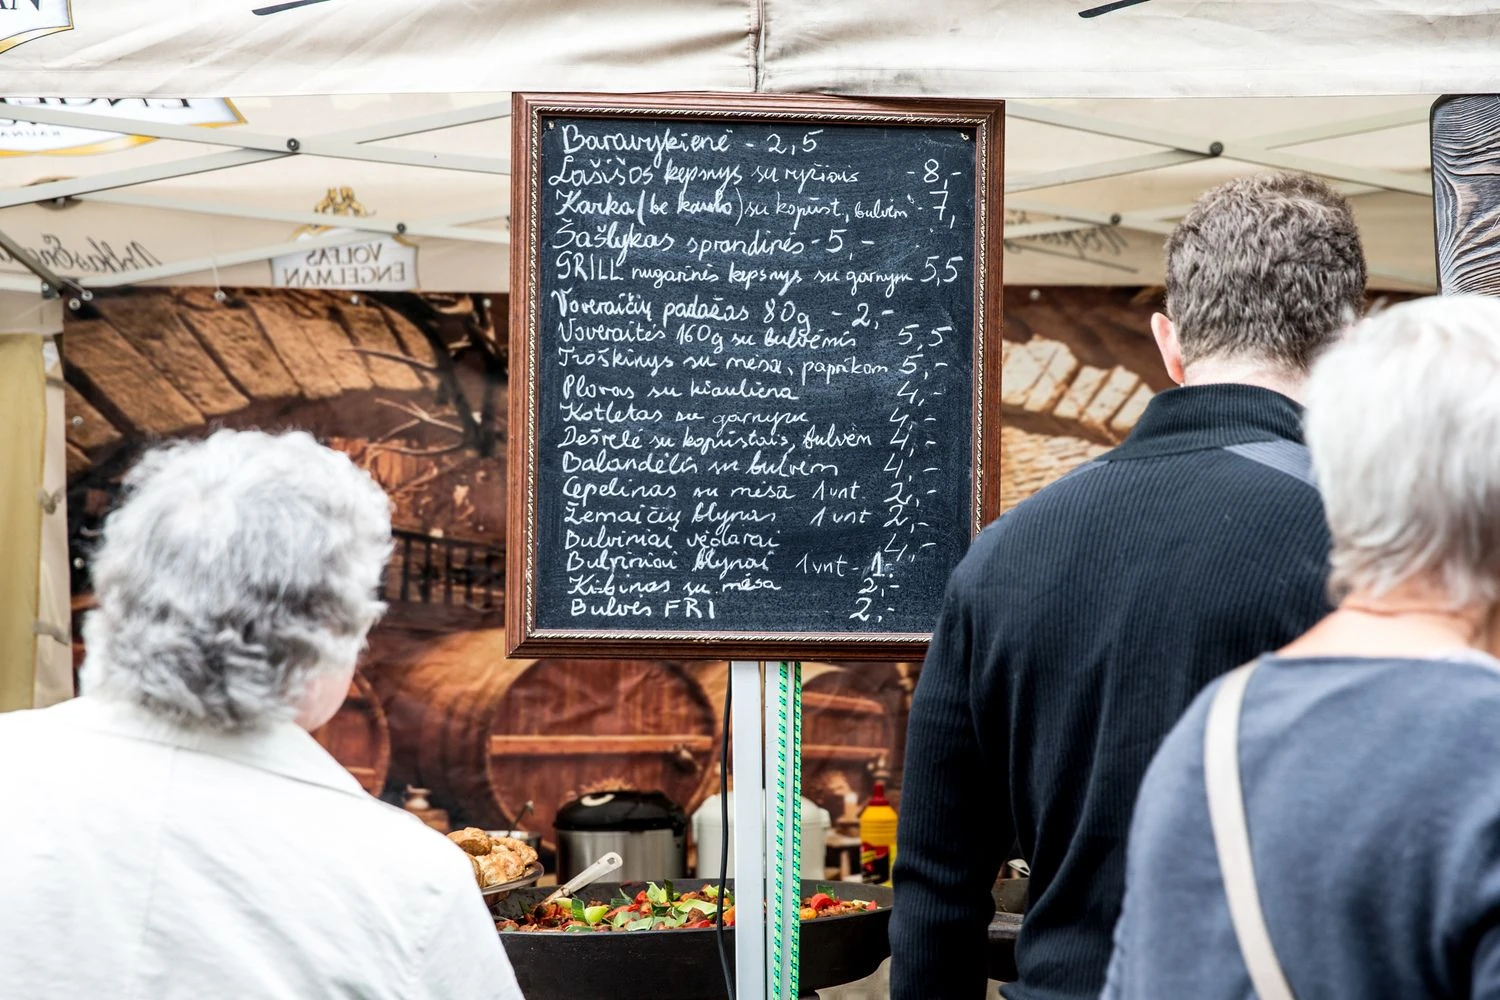 Baravykienė - 2,5
Lašišos kepsnys su ryžiais - 8,-
Karka (be kaulo) su kopūst, bulvėm - 7,
Šašlykas sprandinės - 5,-
GRILL nugarinės kepsnys su garnyru 5,5
Voveraičių padažas 80g - 2,-
Voveraitės 160g su bulvėmis 5,5
Troškinys su mėsa, paprikom 5,-
Plovas su kiauliena 4,-
Kotletas su garnyru 4,-
Dešrelė su kopūstais, bulvėm 4,-
Balandėlis su bulvėm 4,-
Cepelinas su mėsa 1 vnt. 2,-
Žemaičių blynas 1 vnt 2,-
Bulviniai vėdarai 4,-
Bulviniai blynai 1 vnt - 1.-
Kibinas su mėsa 2,-
Bulvės FRI 2,-
VOLFAS
ENGELMAN